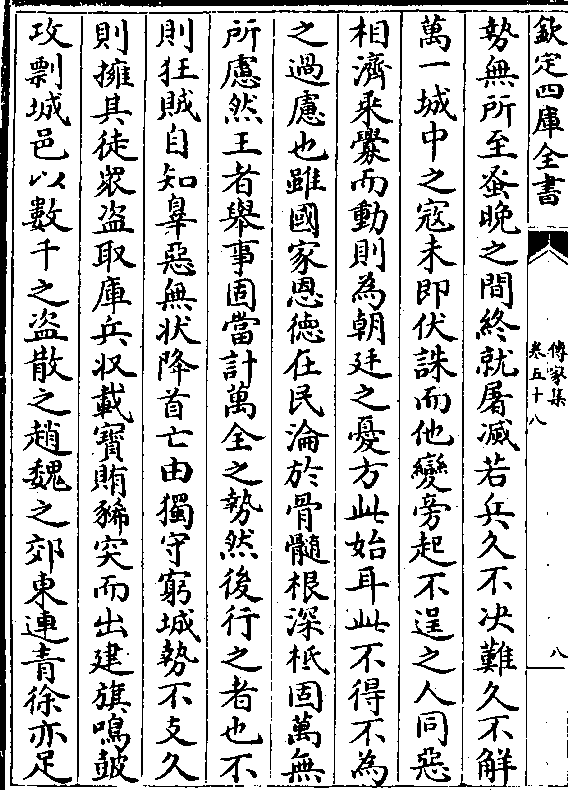 欽定四庫全書
傳家集
卷五十八
八
勢無所至蚤晚之間終就屠滅若兵久不決難久不解
萬一城中之寇未即伏誅而他變旁起不逞之人同惡
相濟乘釁而動則為朝廷之憂方此始耳此不得不為
之過慮也雖國家恩德在民淪於骨髓根深柢固萬無
所慮然王者舉事固當計萬全之勢然後行之者也不
則狂賊自知辠惡無狀降首亡由獨守窮城勢不支久
則擁其徒眾盜取庫兵収載寳賄豨突而出建旗鳴皷
攻剽城邑以數千之盜散之趙魏之郊東連青徐亦足